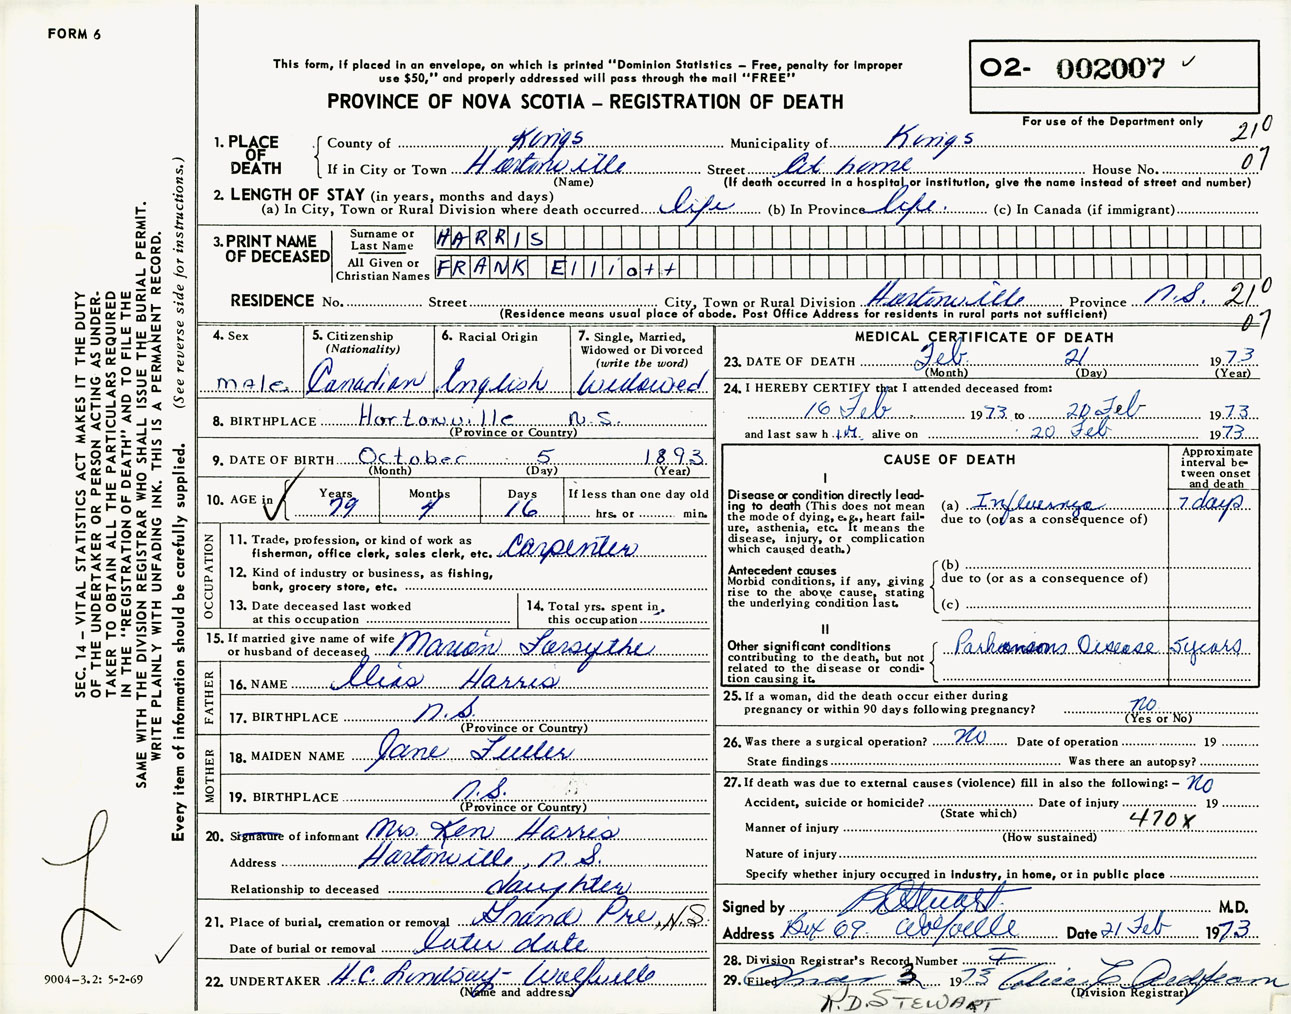 FORM 6
This form, if placed in an envelope, on which is printed "Dominion Statistics – Free, penalty for improper
use $50," and properly addressed will pass through the mail "FREE"
PROVINCE OF NOVA SCOTIA – REGISTRATION OF DEATH
02- 002007 ✓
For use of the Department only
210
07
1. PLACE OF DEATH
County of Kings Municipality of Kings
If in City or Town Hortonville Street At home House No.
(Name) (If death occurred in a hospital or institution, give the name instead of street and number)
2. LENGTH OF STAY (in years, months and days)
(a) In City, Town or Rural Division where death occurred life (b) In Province life. (c) In Canada (if immigrant)
3. PRINT NAME OF DECEASED
Surname or Last Name HARRIS
All Given or Christian Names FRANK Elliott
RESIDENCE No. Street City, Town or Rural Division Hortonville Province N.S. 210
(Residence means usual place of abode. Post Office Address for residents in rural parts not sufficient)
07
4. Sex male
5. Citizenship (Nationality) Canadian
6. Racial Origin English
7. Single, Married, Widowed or Divorced (write the word) Widowed
8. BIRTHPLACE Hortonville N.S.
(Province or Country)
9. DATE OF BIRTH October 5 1893
(Month) (Day) (Year)
10. AGE in Years 79 Months 4 Days 16 If less than one day old hrs. or min.
OCCUPATION
11. Trade, profession, or kind of work as
fisherman, office clerk, sales clerk, etc. Carpenter
12. Kind of industry or business, as fishing,
bank, grocery store, etc.
13. Date deceased last worked
at this occupation
14. Total yrs. spent in
this occupation
15. If married give name of wife
or husband of deceased Marion Forsythe
FATHER
16. NAME Elias Harris
17. BIRTHPLACE N.S.
(Province or Country)
MOTHER
18. MAIDEN NAME Jane Fuller
19. BIRTHPLACE N.S.
(Province or Country)
20. Signature of informant Mrs. Ken Harris
Address Hortonville, N.S.
Relationship to deceased daughter
21. Place of burial, cremation or removal Grand Pre, N.S.
Date of burial or removal later date
22. UNDERTAKER H.C. Lindsay - Wolfville
(Name and address)
MEDICAL CERTIFICATE OF DEATH
23. DATE OF DEATH Feb 21 1973
(Month) (Day) (Year)
24. I HEREBY CERTIFY that I attended deceased from:
16 Feb 1973 to 20 Feb 1973
and last saw him alive on 20 Feb 1973
CAUSE OF DEATH
Approximate interval between onset and death
I
Disease or condition directly leading to death (This does not mean the mode of dying, e.g., heart failure, asthenia, etc. It means the disease, injury, or complication which caused death.)
(a) Influenza 7 days
due to (or as a consequence of)
Antecedent causes
Morbid conditions, if any, giving rise to the above cause, stating the underlying condition last.
(b)
due to (or as a consequence of)
(c)
II
Other significant conditions contributing to the death, but not related to the disease or condition causing it.
Parkinsons Disease 5 years
25. If a woman, did the death occur either during
pregnancy or within 90 days following pregnancy? No
(Yes or No)
26. Was there a surgical operation? No Date of operation 19
State findings Was there an autopsy?
27. If death was due to external causes (violence) fill in also the following: – No
Accident, suicide or homicide? Date of injury 19
(State which) 470X
Manner of injury
(How sustained)
Nature of injury
Specify whether injury occurred in industry, in home, or in public place
Signed by Stewart M.D.
Address Box 69. Wolfville Date 21 Feb 1973
28. Division Registrar's Record Number
29. Filed 3 1973
(Division Registrar)
R.D. STEWART
SEC. 14 – VITAL STATISTICS ACT MAKES IT THE DUTY
OF THE UNDERTAKER OR PERSON ACTING AS UNDER-
TAKER TO OBTAIN ALL THE PARTICULARS REQUIRED
IN THE "REGISTRATION OF DEATH" AND TO FILE THE
SAME WITH THE DIVISION REGISTRAR WHO SHALL ISSUE THE BURIAL PERMIT.
WRITE PLAINLY WITH UNFADING INK. THIS IS A PERMANENT RECORD.
Every item of information should be carefully supplied. (See reverse side for instructions.)
9004–3.2: 5-2-69